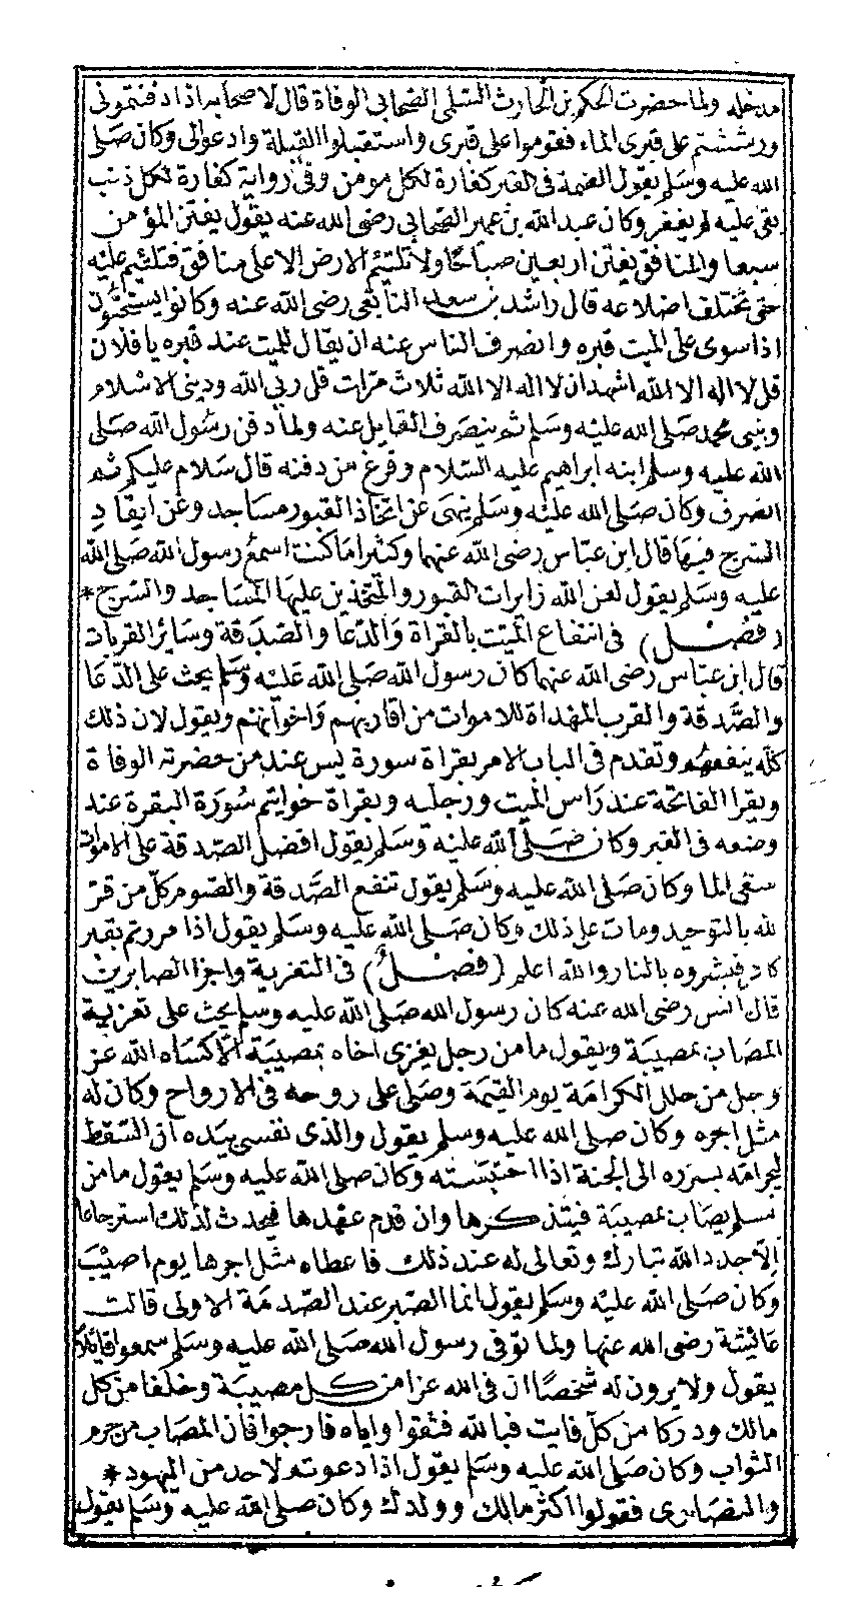 مدخله ولما حضرت الحكم بن الحارث السلمي الصحابي الوفاة قال لاصحابه اذا دفنتموني
ورششتم على قبري الماء فقوموا على قبري واستقبلوا القبلة وادعوا لي وكان صلى
الله عليه وسلم يقول الضمة في القبر كفارة لكل مومن وفي رواية كفارة لكل ذنب
بقى عليه لم يغفر وكان عبد الله بن عمير الصحابي رضى الله عنه يقول يفتن المؤمن
سبعا والمنافق يفتن اربعين صباحا ولا تلتئم الارض الا على منافق فتلتئم عليه
حتى تختلف اضلاعه قال راشد بن سعيد التابعى رضى الله عنه وكانوا يستحبون
اذا سوى على الميت قبره وانصرف الناس عنه ان يقال للميت عند قبره يا فلان
قل لا اله الا الله اشهد ان لا اله الا الله ثلاث مرات قل ربي الله وديني الاسلام
ونبيى محمد صلى الله عليه وسلم ثم ينصرف القايل عنه ولما دفن رسول الله صلى
الله عليه وسلم ابنه ابراهيم عليه السلام وفرغ من دفنه قال سلام عليكم ثم
انصرف وكان صلى الله عليه وسلم ينهى عن اتخاذ القبور مساجد وعن ايقاد
السرج فيها قال ابن عباس رضى الله عنهما وكثيرا ما كنت اسمع رسول الله صلى الله
عليه وسلم يقول لعن الله زايرات القبور والمتخذين عليها المساجد والسرج *
(فصل) في انتفاع الميت بالقراة والدعا والصدقة وساير القربات
قال ابن عباس رضى الله عنهما كان رسول الله صلى الله عليه وسلم يحث على الدعا
والصدقة والقرب المهداة للاموات من اقاربهم واخوانهم ويقول لان ذلك
كله ينفعهم وتقدم في الباب الامر بقراة سورة يس عند من حضرته الوفاة
ويقرا الفاتحة عند راس الميت ورجليه وبقراة خواتيم سورة البقرة عند
وضعه في القبر وكان صلى الله عليه وسلم يقول افضل الصدقة على الاموات
سقى الما وكان صلى الله عليه وسلم يقول تنفع الصدقة والصوم كل من قر
لله بالتوحيد ومات على ذلك وكان صلى الله عليه وسلم يقول اذا مررتم بقبر
كافر فبشروه بالنار والله اعلم (فصل) في التعزية واجزا الصابرين
قال انس رضى الله عنه كان رسول الله صلى الله عليه وسلم يحث على تعزية
المصاب بمصيبة ويقول ما من رجل يعزى اخاه بمصيبة الا كساه الله عز
وجل من حلل الكرامة يوم القيمة وصلى على روحه في الارواح وكان له
مثل اجره وكان صلى الله عليه وسلم يقول والذى نفسي بيده ان السقط
ليجر امه بسرره الى الجنة اذا احتبسته وكان صلى الله عليه وسلم يقول ما من
مسلم يصاب بمصيبة فيتذكرها وان قدم عهدها فيحدث لذلك استرجاعا
الا جدد الله تبارك وتعالى له عند ذلك فاعطاه مثل اجرها يوم اصيب
وكان صلى الله عليه وسلم يقول انما الصبر عند الصدمة الاولى قالت
عائيشة رضى الله عنها ولما توفى رسول الله صلى الله عليه وسلم سمعوا قائلا
يقول ولا يرون له شخصا ان في الله عزا من كل مصيبة وخلفا من كل
هالك ودركا من كل فايت فبالله فثقوا واياه فارجوا فان المصاب من حرم
الثواب وكان صلى الله عليه وسلم يقول اذا دعوتم لاحد من اليهود *
والنصارى فقولوا اكثر مالك وولدك وكان صلى الله عليه وسلم يقول